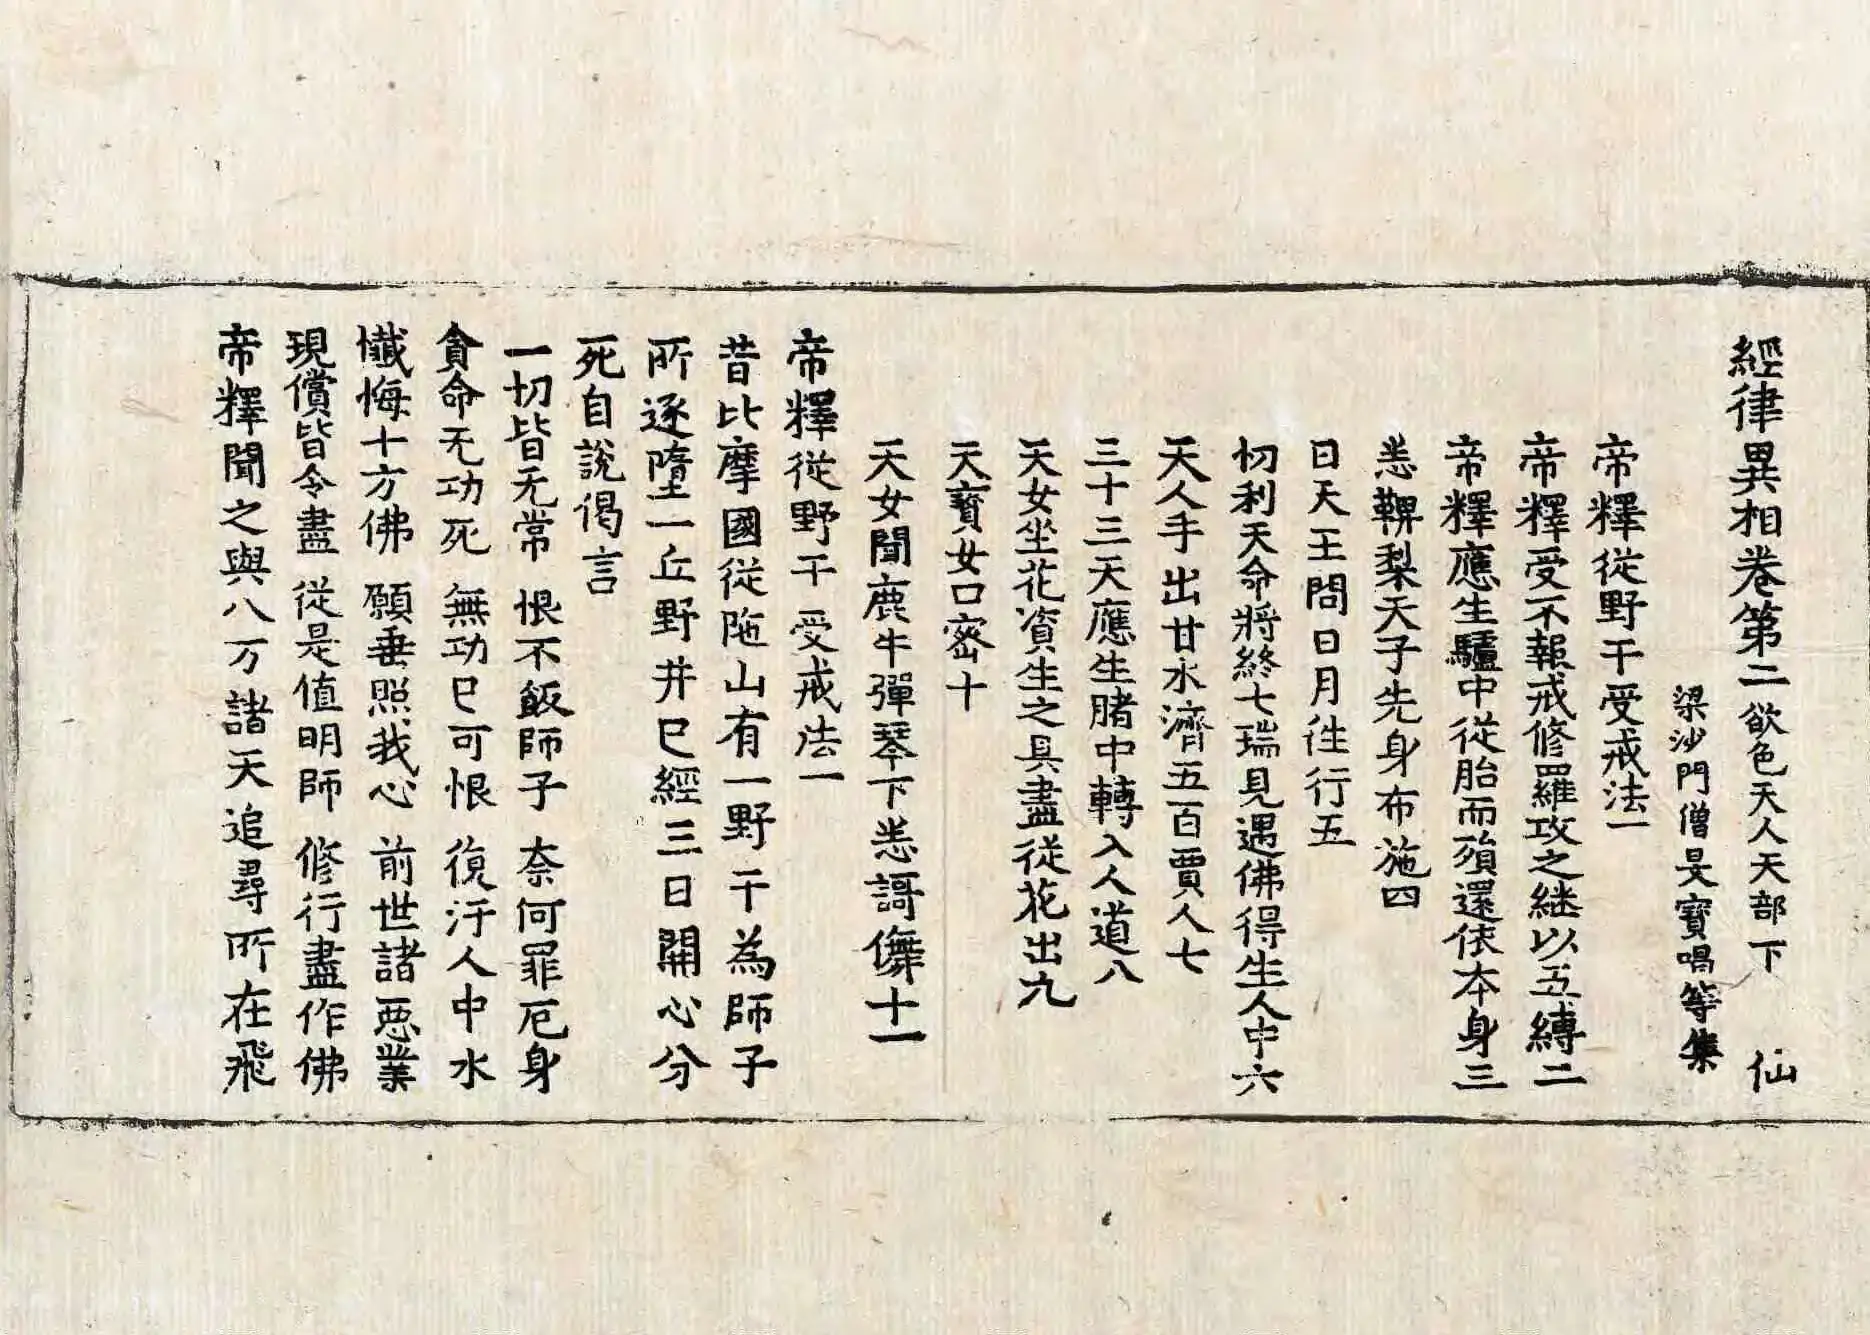 經律異相卷第二欲色天人天部下　仙
梁沙門僧旻寶唱等集
帝釋從野干受戒法一
帝釋受不報戒修羅攻之継以五縛二
帝釋應生驢中從胎而殞還依本身三
恙鞞梨天子先身布施四
日天王問日月往行五
忉利天命將終七瑞見遇佛得生人中六
天人手出甘水濟五百賈人七
三十三天應生猪中轉入人道八
天女坐花資生之具盡從花出九
天寶女口密十
天女聞鹿牛彈琴下恙謌儛十一
帝釋從野干受戒法一
昔比摩國從陁山有一野干為師子
所逐墮一丘野井巳經三日開心分
死自說偈言
一切皆无常　恨不飯師子　奈何罪厄身
貪命无功死　無功巳可恨　復汙人中水
懺悔十方佛　願垂照我心　前世諸惡業
現償皆令盡　從是值明師　修行盡作佛
帝釋聞之與八万諸天追尋所在飛